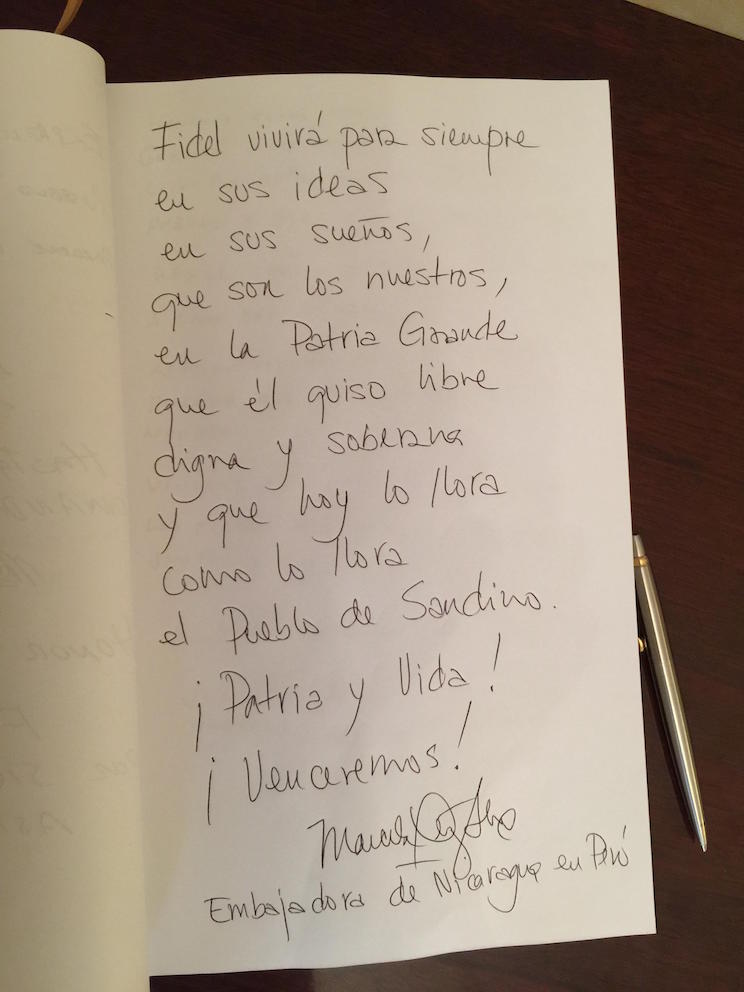 Fidel vivirá para siempre
en sus ideas
en sus sueños,
que son los nuestros,
en la Patria Grande
que él quiso libre
digna y soberana
y que hoy lo llora
como lo llora
el Pueblo de Sandino.
¡Patria y Vida!
¡Venceremos!
Embajadora de Nicaragua en Perú